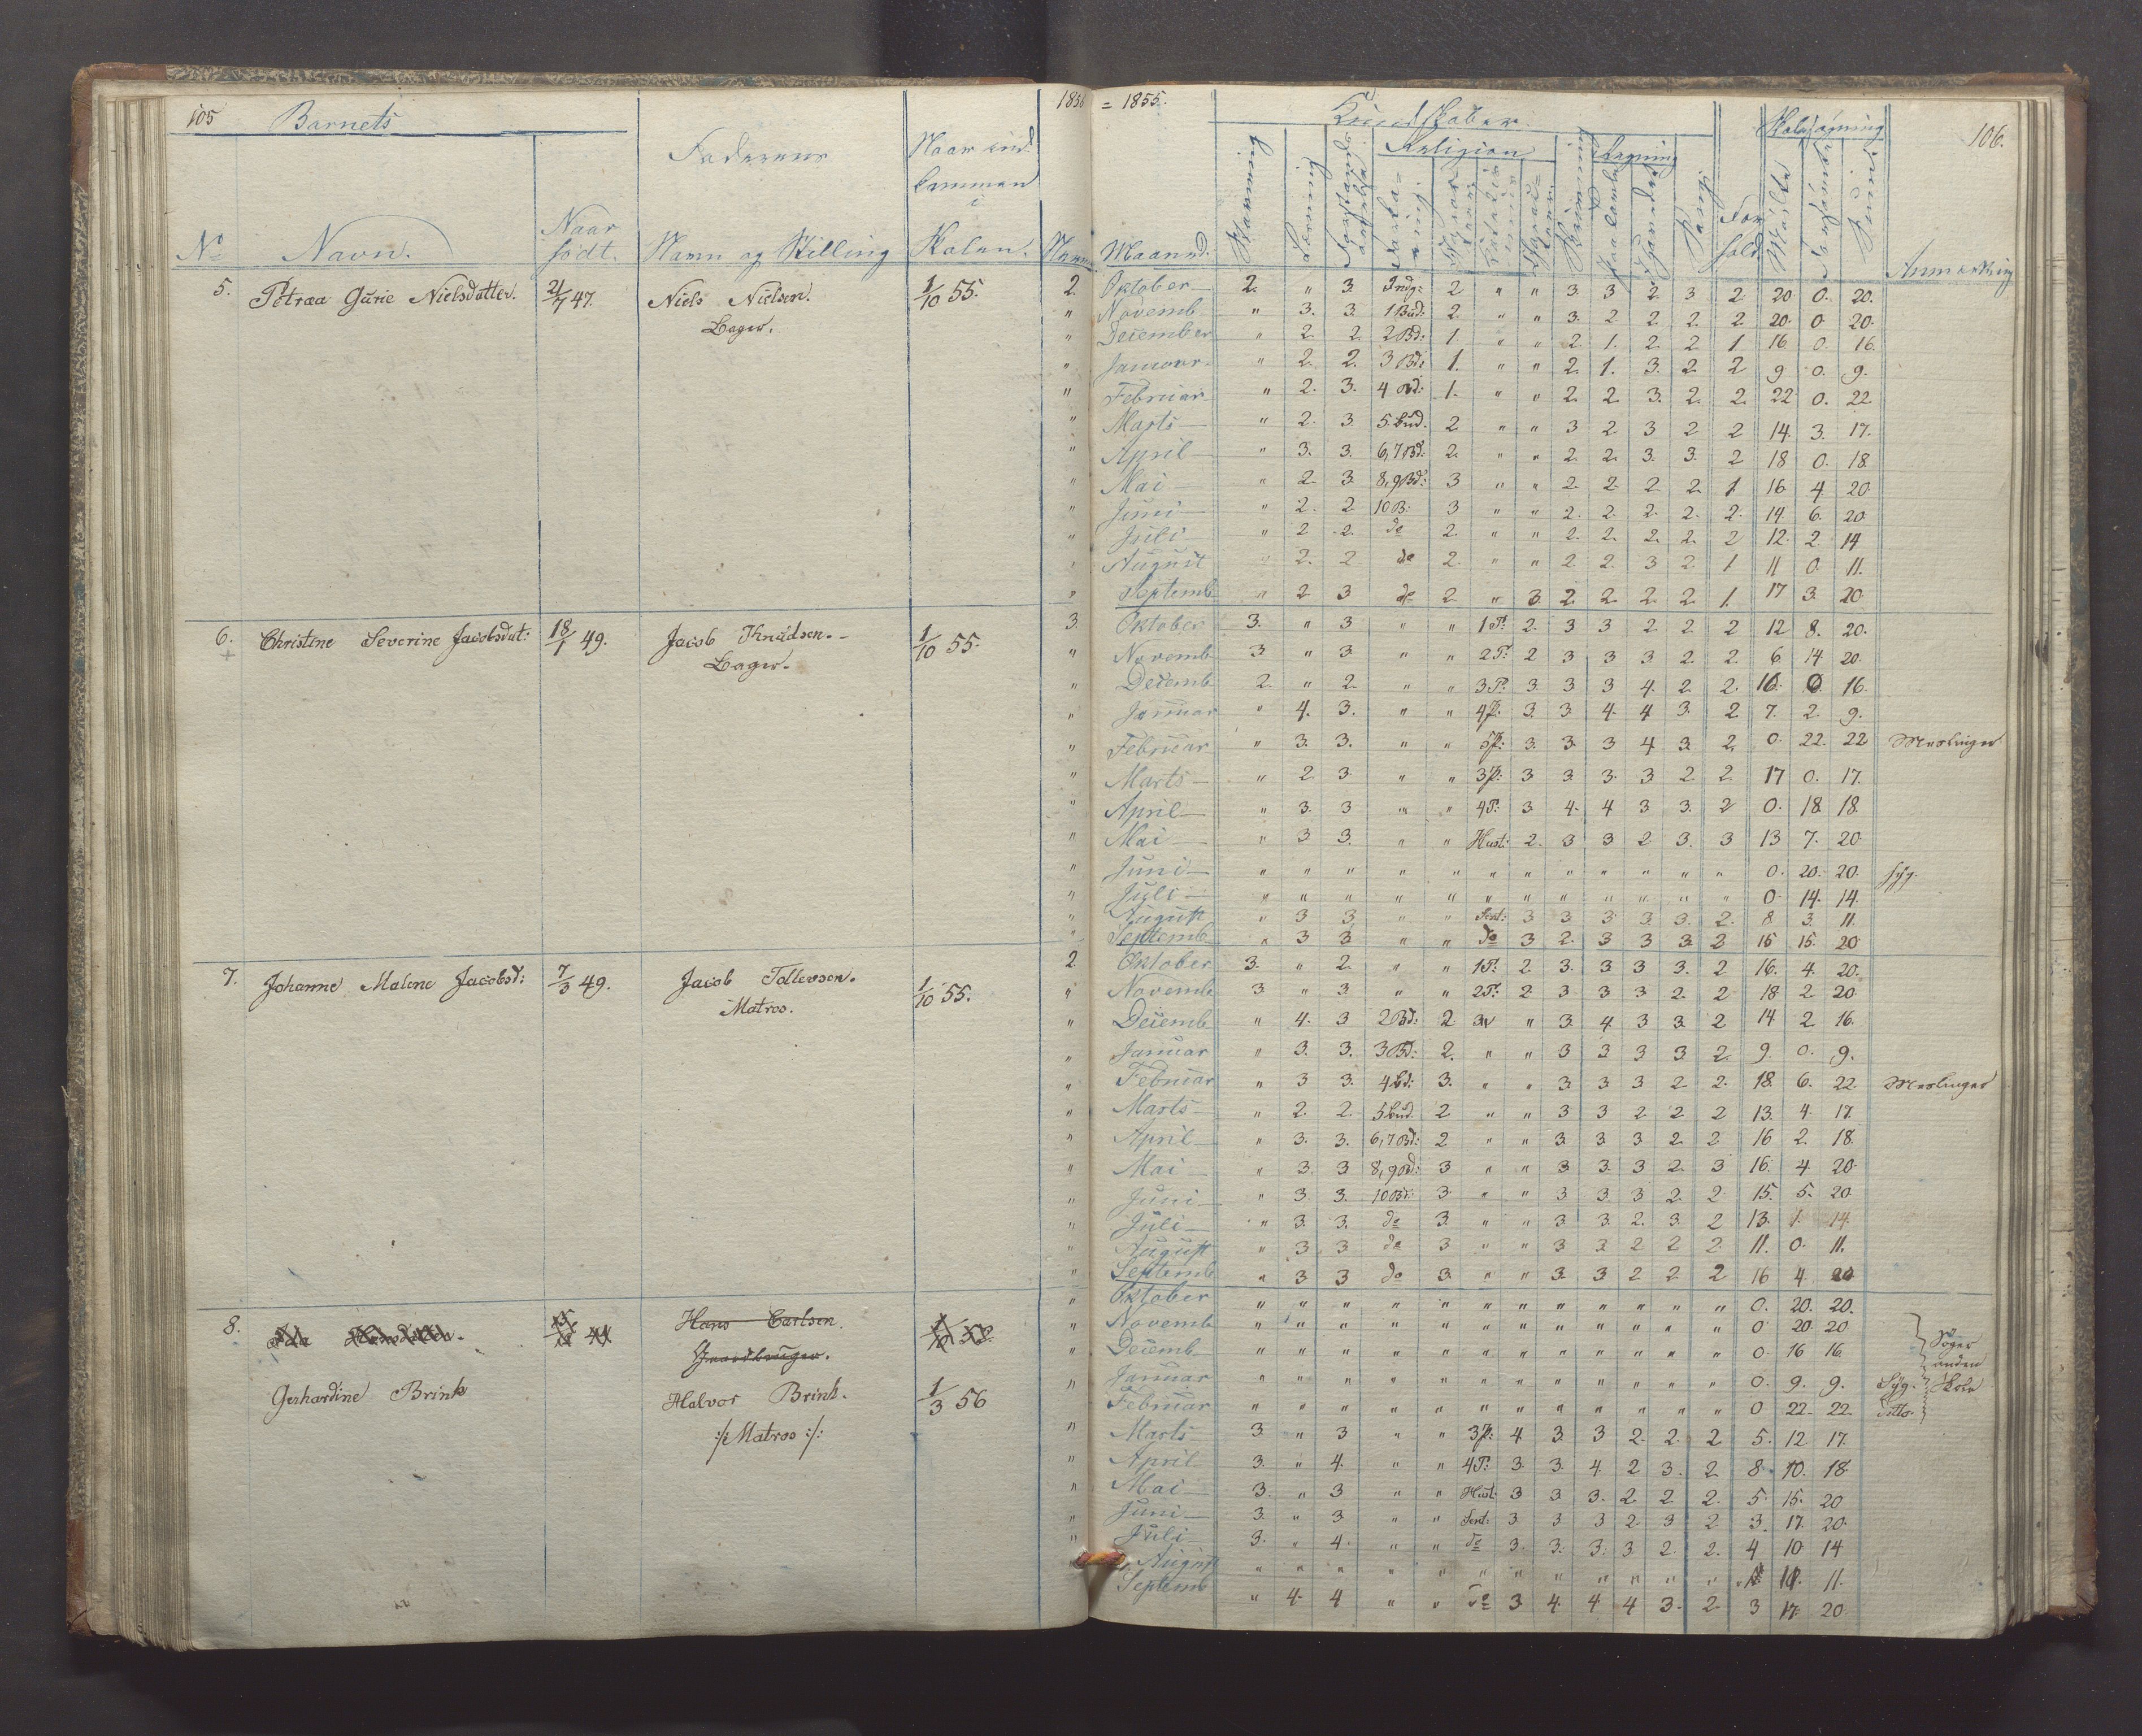 105 Barnets
1856 = 1855.
Kundskaber
Skolesøgning
106.
Religion
Regning
Faderens
Naar ind-
kommen
i
Skolen.
No Navn.
Naar
født.
Navn og Stilling
Maaned.
Stavning
Læsning
Skrivning
Sang
For
hold
Mødte
Forsømte
Sum
Anmærkning
5. Petrea Gurie Nielsdatter. 21/7 47. Niels Nielsen. 1/10 55. 2. Oktober 2. " 3. Indg: 2 " " 3. 3 2. 3 2. 20. 0. 20.
Bager. " Novemb " 3. 3. 1 Bud: 2. " " 3. 2 2 2. 2. 20. 0 20.
" December " 2. 2. 2 Bd: 1. " " 2. 1. 2. 2 1 16. 0. 16.
" Januar " 2. 2. 3 Bd: 1. " " 2. 1. 3. 2. 2 9 0. 9.
" Februar " 2. 3. 4 Bd: 1. " " 2. 2. 3. 2. 2. 22 0. 22.
" Marts " 2. 3. 5. bud. 2 " " 3 2 3 2 2 14. 3. 17.
" April " 3. 3. 6,7 Bd: 2. " " 2. 2. 3. 3. 2 18 0. 18.
" Mai " 2. 3. 8,9 Bd: 3 " " 2. 2. 2. 2. 1 16. 4 20.
" Juni " 2. 2 10 B: 3 " " 2. 2. 2. 2. 2. 14 6. 20
" Juli " 2 2. do 2. " " 2. 2. 2. 2. 2 12. 2. 14
" August " 2. 2. do 2. " " 2 2. 3 2. 1 11 0. 11.
" Septemb " 2 3 do 2 " 3. 2. 2 2. 2 1. 17 3. 20.
6. Christine Severine Jacobsdat: 18/1 49. Jacob Knudsen. 1/10 55. 3. Oktober 3. " 3 " " 1 P: 2. 3 3 2. 2. 2 12 8. 20.
Bager. " Novemb 3 " 3 " " 2 P: 2 3 3 3 2. 2. 6. 14 20.
" Decemb 2. " 2. " " 3 P: 3. 3 3 4. 2. 2. 16. 0. 16.
" Januar " 4. 3. " " 4 P: 3. 3. 4. 4 3. 2 7. 2. 9.
" Februar " 3. 3. " " 5 P: 3. 3. 3 4 3. 2. 0. 22. 22 Meslinger
" Marts " 2. 3. " " 3 P: 3 3. 3. 3 2 2. 17 0. 17.
" April " 3. 3 " " 4 P: 3. 4. 4 3 3. 2 0. 18 18.
" Mai " 3 3. " " Hust: 2. 3 3 2 3. 3 13 7. 20.
" Juni " " " " " " " " " " " " 0. 20. 20. syg.
" Juli " " " " " " " " " " " " 0. 14. 14.
" August " 3 3 " " Sent: 3 3 3 3. 3. 2. 8 3. 11.
" Septemb " 3 3 " " do 3 2. 3 3 3. 2 15 15. 20
7. Johanne Malene Jacobsd: 7/3 49. Jacob Tollevsen. 1/10 55. 2. Oktober 3. " 2. " " 1 P: 2. 3. 3. 3 3. 2 16. 4. 20.
Matros. " Novemb 3 " 3 " " 2 P: 2 3 3 3 2. 2 18 2 20.
" Decemb " 4. 3 2 Bd: 2 " 3. 4 3 3. 2 14 2 16.
" Januar " 3. 3. 3 Bd: 2. " " 3 3 3 3 2. 9. 0. 9.
" Februar " 3 3. 4 bd: 3. " " 3. 3 3 2 2. 18. 6. 22. Meslinger
" Marts " 2. 2. 5 bud. 2 " " 3 3 2 2 2 13. 4. 17.
" April " 3. 3. 6,7 Bd: 2 " " 3. 3. 3 2. 2 16 2. 18.
" Mai " 3. 3 8,9 Bd: 3 " " 3 3. 3 2. 3 16. 4 20.
" Juni " 3. 3. 10 Bd: 3. " " 3 3. 3 2. 2. 15. 5. 20
" Juli " 3. 3. do 3. " " 3. 3. 2. 3. 2 13. 1. 14.
" August " 3 3 do 3 " " 3 3 2 2 2. 11. 0. 11.
" Septemb " 3 3 do 3. " " 3. 3 2 2 2 16 4 20
8. Hans Carlsen. " Oktober " " " " " " " " " " " " 0. 20. 20.
Gaardbruger. " Novemb " " " " " " " " " " " " 0 20. 20 Søger
" Decemb " " " " " " " " " " " " 0. 16 16. anden
Gerhardine Brink Halvor Brink. 1/3 56 " Januar " " " " " " " " " " " " 0. 9. 9. Syg. Skole
" Februar " " " " " " " " " " " " 0 22. 22. ditto.
:/: Matros :/: " Marts 3. " 3 " " 3 P: 4 3. 3 2. 2. 2 5. 12 17.
" April 3. " 4. " " 4 P: 3. 3. 4. 2 3. 2 8. 10. 18.
" Mai 3. " 3 " " Hust: 3 3 3. 2. 2. 2. 5. 15. 20
" Juni 3. " 3 " " Sent: 3. 3 3 2. 3 2 3. 17. 20.
" Juli 3. " 4. " " do 3. 3. 3. 3. 2. 2. 4 10 14
August " " " " " " " " " " " " 11. 11.
Septemb " 4. 4 " " do 3. 4. 4 4 3. 2. 3 17. 20.